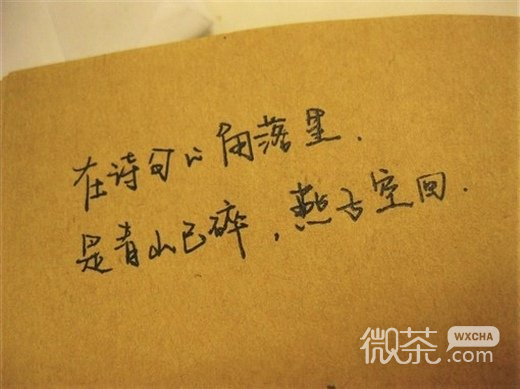 在诗句的角落里.
是青山已碎，燕子空回.
微茶 WXCHA
.com